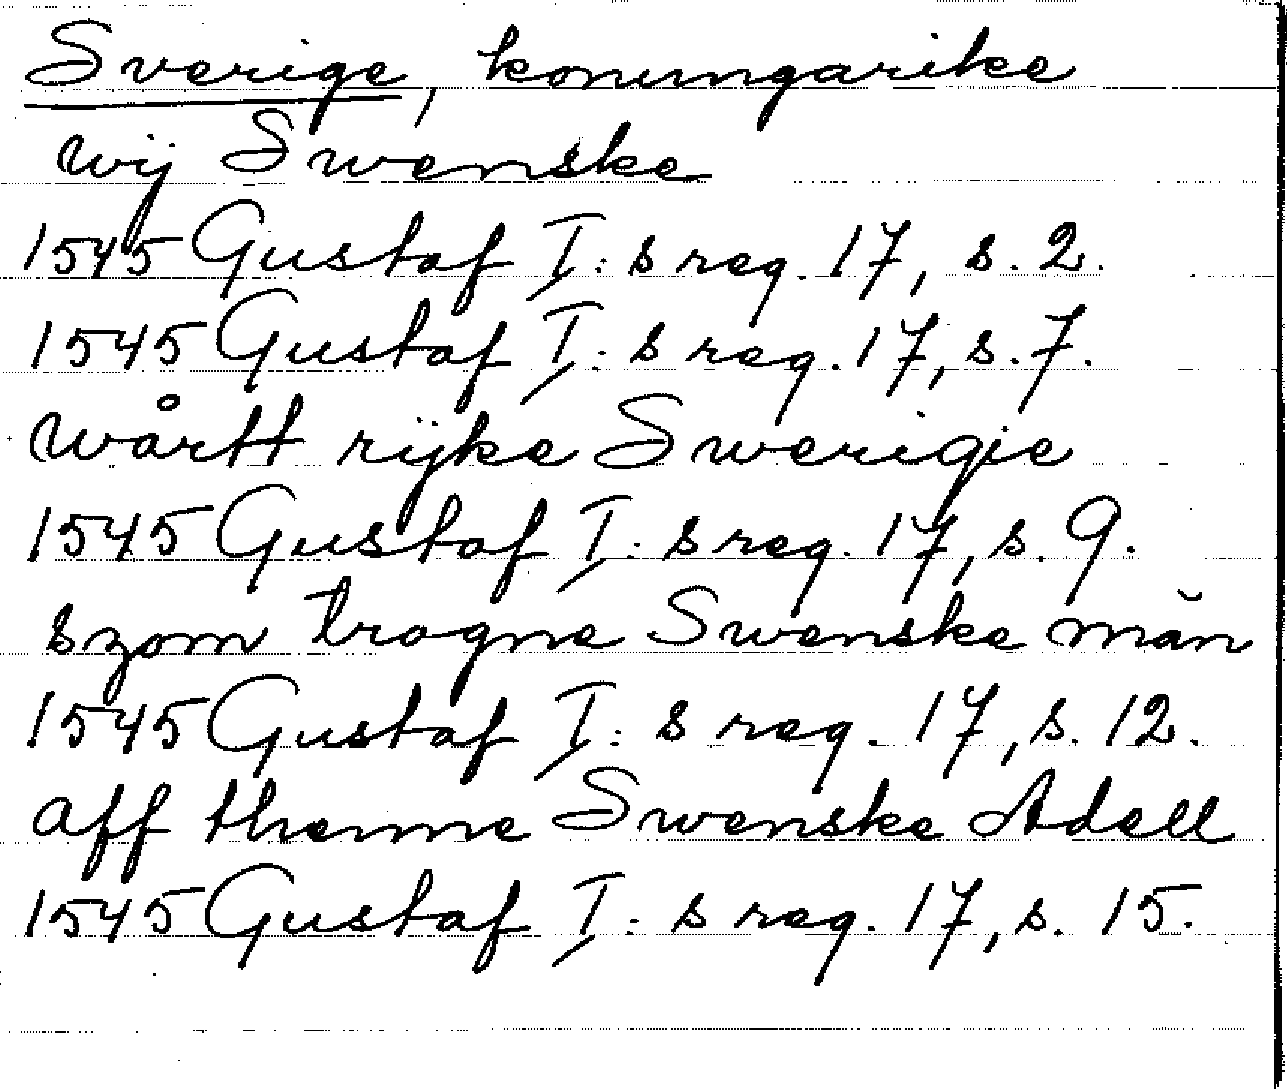 Sverige, konungarike
wij Swenske
1545 Gustaf I:s reg. 17, s. 2.
1545 Gustaf I:s reg. 17, s. 7.
wårtt rijke Swerigie
1545 Gustaf I:s reg. 17, s. 9.
szom trogne Swenske män
1545 Gustaf I:s reg. 17, s. 12.
aff thenne Swenske Adell
1545 Gustaf I:s reg. 17, s. 15.